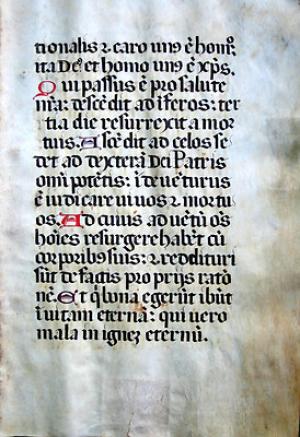 tionalis ⁊ caro un9 ē homo:
ita Dē9 et homo unus ē xp̄s.
Qui passus ē pro salute
nr̄a: descēdit ad īferos: ter
tia die resurrexit a mor
tuis. Ascēdit ad celos se
det ad dexterā Dei Patris
omīpotētis: īde vēturus
ē iudicare vivos ⁊ mortu
os. Ad cuius advētū oēs
hoīes resurgere habēt cū
corporibus suis: ⁊ reddituri
sūt de factis proprijs ratō
nē. Et q̄ bona egerūt ibūt
ī vitam eternā: qui vero
mala in ignez eternū.